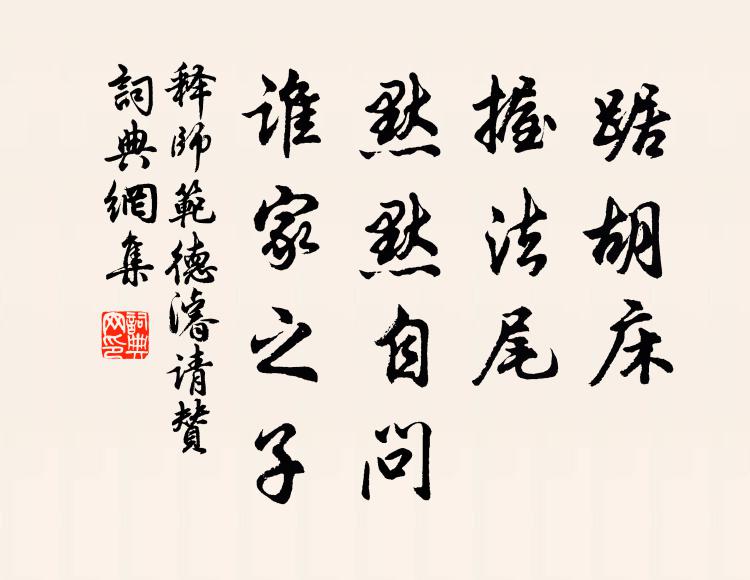 踞胡床
握法尾
默默自问
谁家之子
释师範德濬请赞
詞典網集
詞典网印